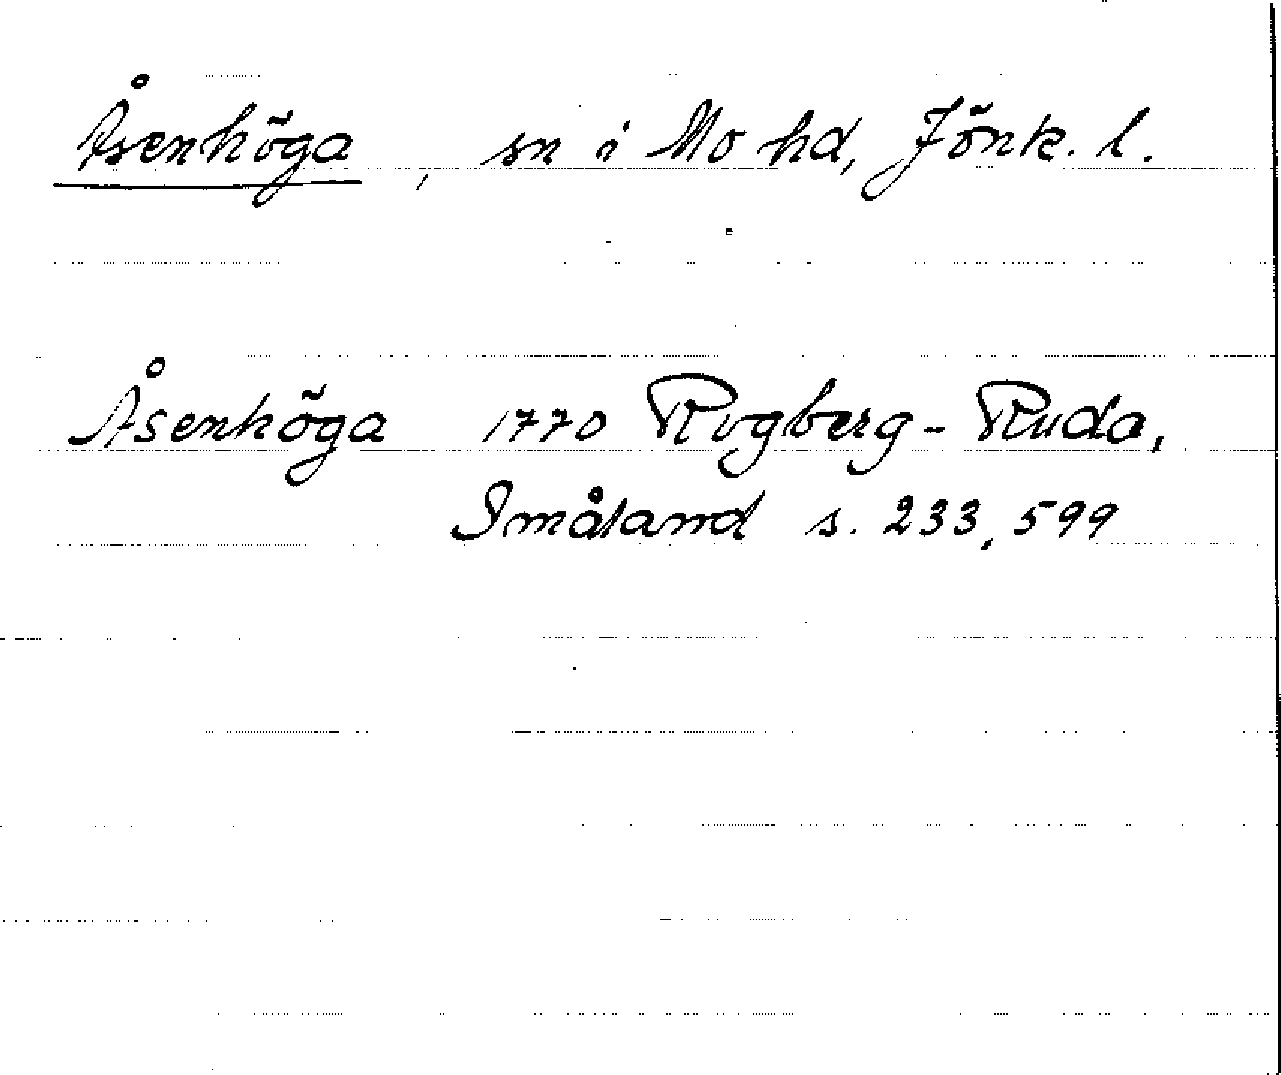 Åsenhöga, sn i Mo hd, Jönk. l.
Åsenhöga 1770 Rogberg-Ruda,
Småland s. 233, 599